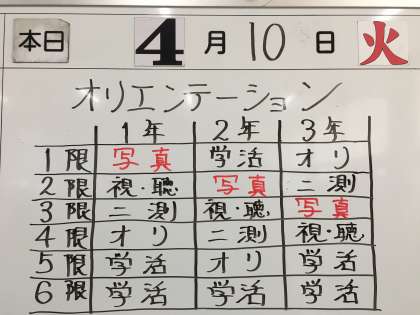 本日 4月10日 火
オリエンテーション
1年 2年 3年
1限 写真 学活 オリ
2限 視・聴 写真 ニ測
3限 ニ測 視・聴 写真
4限 オリ ニ測 視・聴
5限 学活 オリ 学活
6限 学活 学活 学活